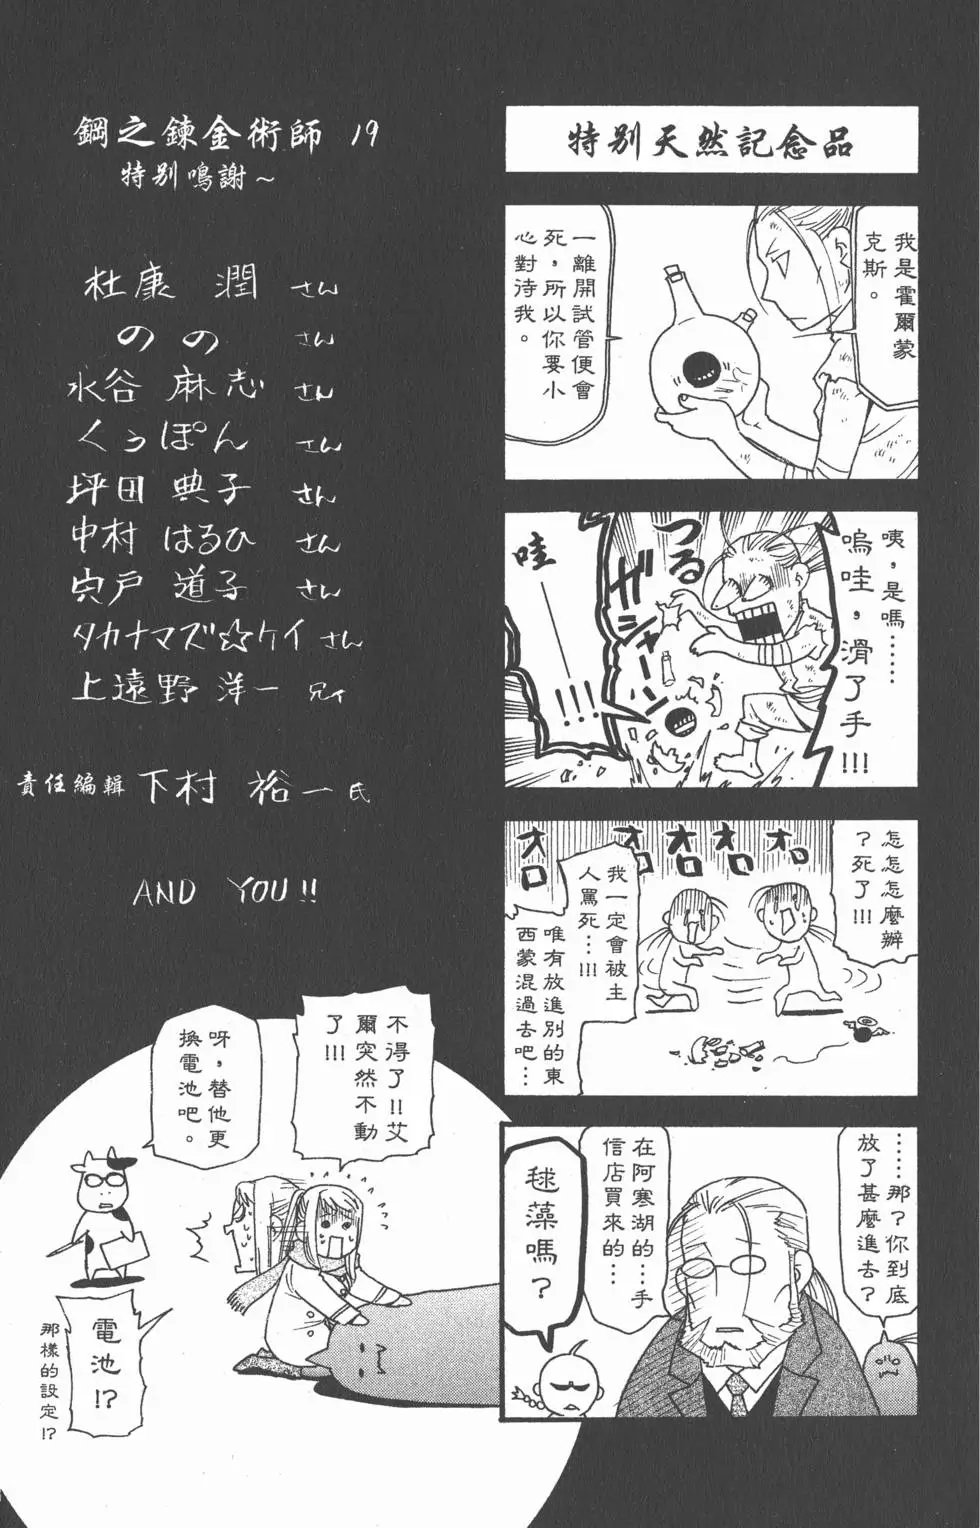 特別天然記念品
我是霍爾蒙
克斯。
一離開試管便會
死，所以你要小
心對待我。
咦，是嗎……
嗚哇，滑了手!!!
つるっ
ガシャーン
哇──!!!
怎怎怎麼辦
?死了!!!
オロ オロ オロ オロ オロ
我一定會被主
人罵死…!!!
唯有放進別的東
西蒙混過去吧…
……那？你到底
放了甚麼進去？
在阿寒湖的…手
信店買來的…
毬藻嗎？
鋼之鍊金術師 19
特別鳴謝～
杜康 潤 さん
のの さん
水谷 麻志 さん
くぅぽん さん
坪田 典子 さん
中村 はるひ さん
宍戸 道子 さん
タカナマズ☆ケイ さん
上遠野 洋一 兄ィ
責任編輯 下村 裕一 氏
AND YOU!!
不得了!!艾
爾突然不動
了!!!
呀，替他更
換電池吧。
電池!?
那樣的設定!?